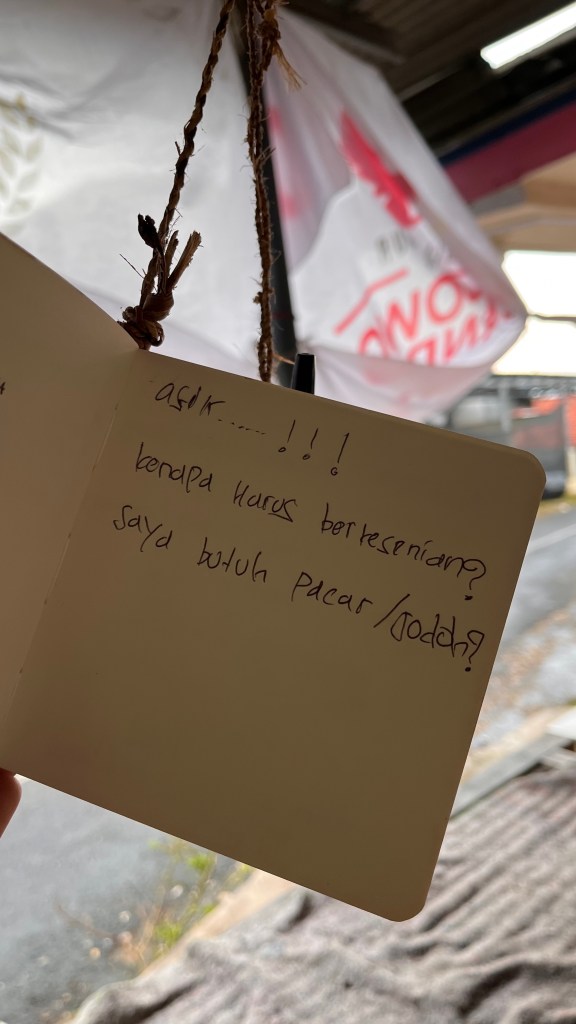 asik...... !!!
kenapa Harus berkesenian?
saya butuh pacar/Jodoh?